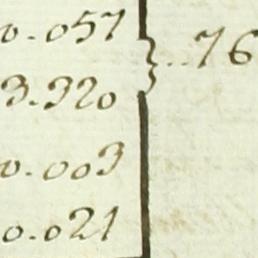 0.057
3.320 } .. 76
0.003
0.021